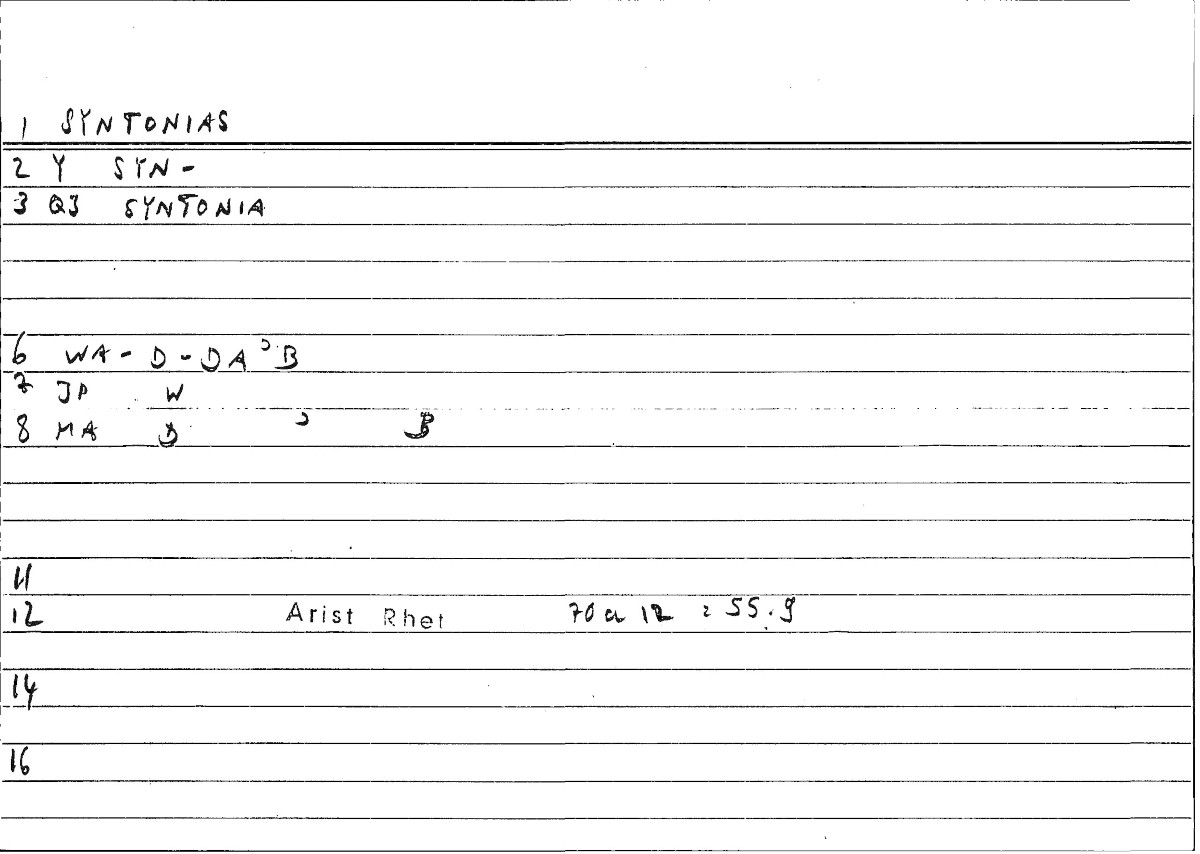 1 SYNTONIAS
2 Y SYN-
3 Q3 SYNTONIA
6 WA-D-DAʾB
7 JP W
8 MA D ʾ B
11
12 Arist Rhet 70a 12 : 55.9
14
16